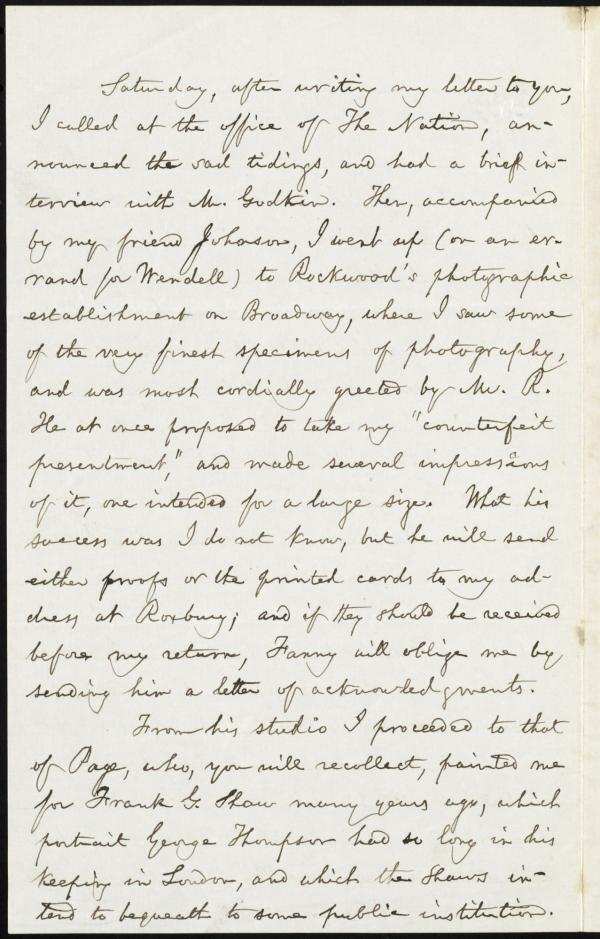 Saturday, after writing my letter to you,
I called at the office of The Nation, an-
nounced the sad tidings, and had a brief in-
terview with Mr. Godkin. Then, accompanied
by my friend Johnson, I went up (on an er-
rand for Wendell) to Rockwood's photographic
establishment on Broadway, where I saw some
of the very finest specimens of photography,
and was most cordially greeted by Mr. R.
He at once proposed to take my "counterfeit
presentment," and made several impressions
of it, one intended for a large size. What his
success was I do not know, but he will send
either proofs or the printed cards to my ad-
dress at Roxbury; and if they should be received
before my return, Fanny will oblige me by
sending him a letter of acknowledgments.
From his studio I proceeded to that
of Page, who, you will recollect, painted me
for Frank G. Shaw many years ago, which
portrait George Thompson had so long in his
keeping in London, and which the Shaws in-
tend to bequeath to some public institution.